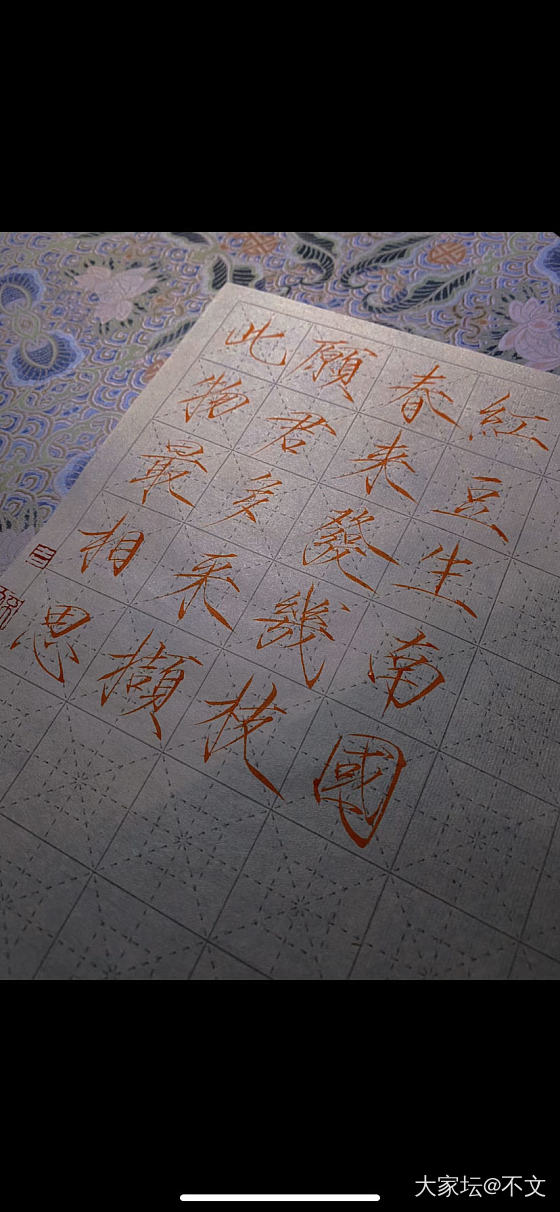 紅豆生南國
春来發幾枝
願君多采擷
此物最相思
大家坛@不文